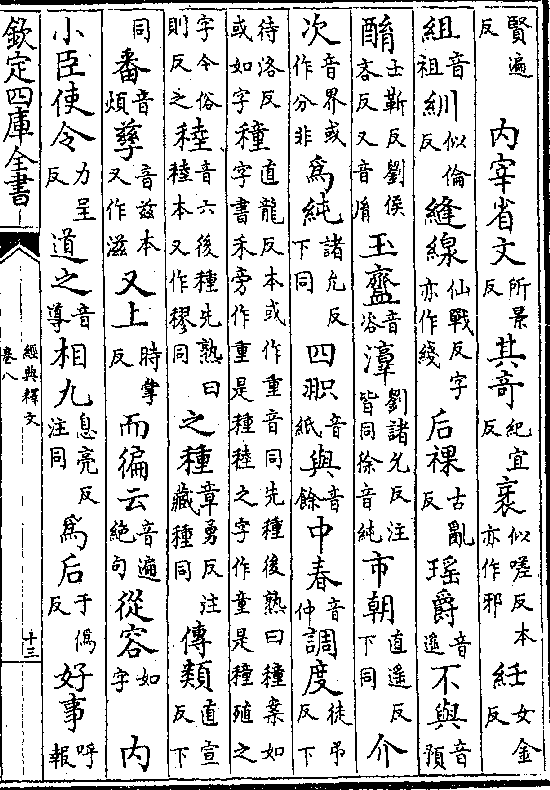 賢遍反　內宰省文所景反其奇紀宜反衺似嗟反本亦作邪紝女金反
組音祖紃似倫反縫線仙戰反字亦作綫后祼古亂反瑶爵音遥不與音預
酳士靳反劉侯吝反又音胤玉齍音咨淳劉諸允反注皆同徐音純市朝直遥反下同介
次音界或作分非為純諸允反下同四咫音紙與音餘中春音仲調度徒弔反下
待洛反或如字種直龍反本或作重音同先種後熟曰種案如字書禾旁作重是種稑之字作童是穜殖之
字今俗則反之稑音六後種先熟曰稑本又作穋同之種章勇反注藏種同傳類直宣反下
同番音煩孳音兹本又作滋又上時掌反而徧云音遍絶句從容如字內
小臣使令力呈反道之音導相九息亮反注同為后于偽反好事呼報
欽定四庫全書
經典釋文
卷八
十三